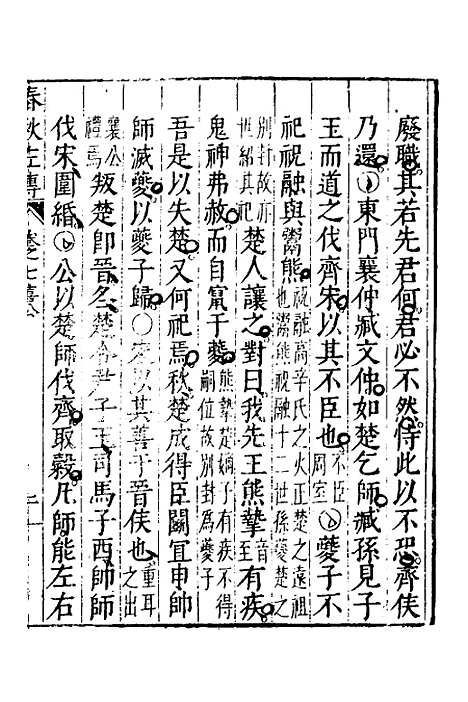 廢職其若先君何君必不然恃此以不恐齊侯
乃還○東門襄仲臧文仲如楚乞師臧孫見子
玉而道之伐齊宋以其不臣也不臣周室○夔子不
祀祝融與鬻熊祝融高辛氏之火正楚之遠祖也鬻熊祝融十二世孫夔楚之
別封故亦世紹其祀楚人讓之對曰我先王熊摯音至有疾
鬼神弗赦而自竄于夔熊摯楚嫡子有疾不得嗣位故別封爲夔子
吾是以失楚又何祀焉秋楚成得臣鬬宜申帥
師滅夔以夔子歸○宋以其善于晉侯也重耳之出
襄公禮焉叛楚卽晉冬楚令尹子玉司馬子西帥師
伐宋圍緡○公以楚師伐齊取穀凡師能左右
春秋左傳 卷之七僖公